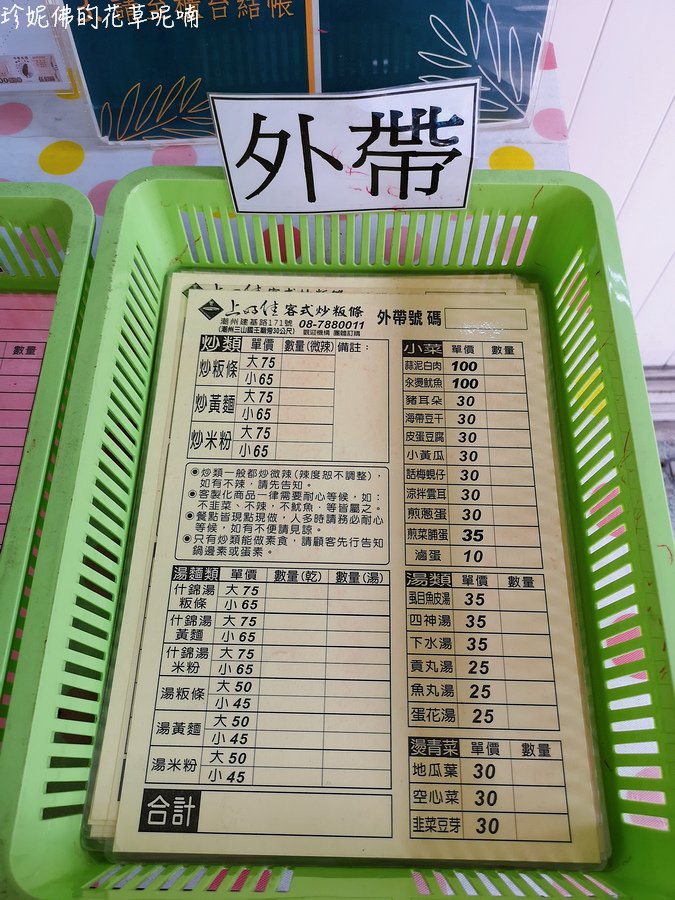 珍妮佛的花草呢喃
台結帳
外帶
上品佳 客式炒粄條
潮州建基路171號 08-7880011
(潮州三山國王廟旁30公尺) 歡迎機構 團體訂購
外帶號碼
炒類 單價 數量(微辣) 備註：
炒粄條 大 75
小 65
炒黃麵 大 75
小 65
炒米粉 大 75
小 65
●炒類一般都炒微辣(辣度恕不調整)，
如有不辣，請先告知。
●客製化商品一律需要耐心等候，如：
不韭菜、不辣，不魷魚，等皆屬之。
●餐點皆現點現做，人多時請務必耐心
等候，如有不便請見諒。
●只有炒類能做素食，請顧客先行告知
鍋邊素或蛋素。
湯麵類 單價 數量(乾) 數量(湯)
什錦湯粄條 大 75
小 65
什錦湯黃麵 大 75
小 65
什錦湯米粉 大 75
小 65
湯粄條 大 50
小 45
湯黃麵 大 50
小 45
湯米粉 大 50
小 45
合計
小菜 單價 數量
蒜泥白肉 100
汆燙魷魚 100
豬耳朵 30
海帶豆干 30
皮蛋豆腐 30
小黃瓜 30
話梅蜆仔 30
涼拌雲耳 30
煎蔥蛋 30
煎菜脯蛋 35
滷蛋 10
湯類 單價 數量
虱目魚皮湯 35
四神湯 35
下水湯 35
貢丸湯 25
魚丸湯 25
蛋花湯 25
燙青菜 單價 數量
地瓜葉 30
空心菜 30
韭菜豆芽 30
數量